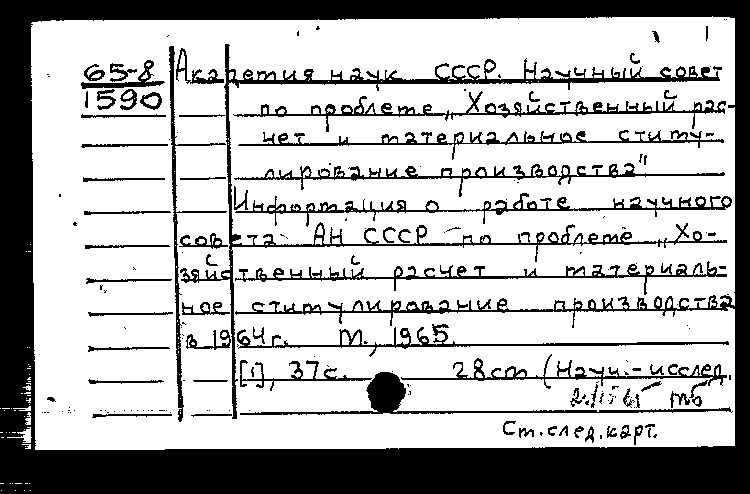 65-8
1590
Академия наук СССР. Научный совет
по проблеме „Хозяйственный рас-
чет и материальное стиму-
лирование производства"
Информация о работе научного
совета АН СССР по проблеме „Хо-
зяйственный расчет и материаль-
ное стимулирование производства
в 1964г. М., 1965.
[1], 37с. 28см (Научн.-исслед.
Ст.след.карт.